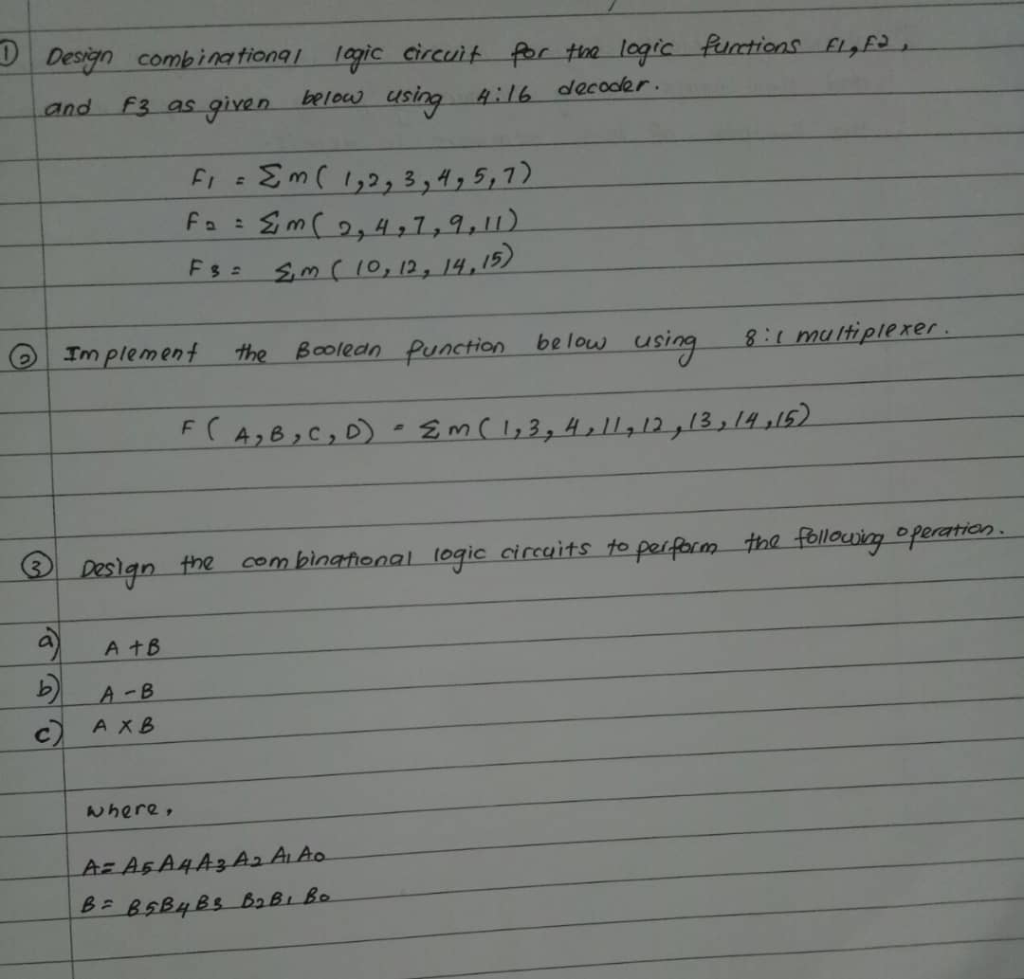 ① Design combinational logic circuit for the logic functions F1, F2,
and F3 as given below using 4:16 decoder.
F1 = Σm( 1,2,3,4,5,7)
F2 = Σm( 2,4,7,9,11)
F3 = Σm( 10,12,14,15)
② Implement the Boolean function below using 8:1 multiplexer.
F( A,B,C,D) = Σm(1,3,4,11,12,13,14,15)
③ Design the combinational logic circuits to perform the following operation.
a) A + B
b) A - B
c) A X B
where,
A= A5 A4 A3 A2 A1 A0
B= B5 B4 B3 B2 B1 B0